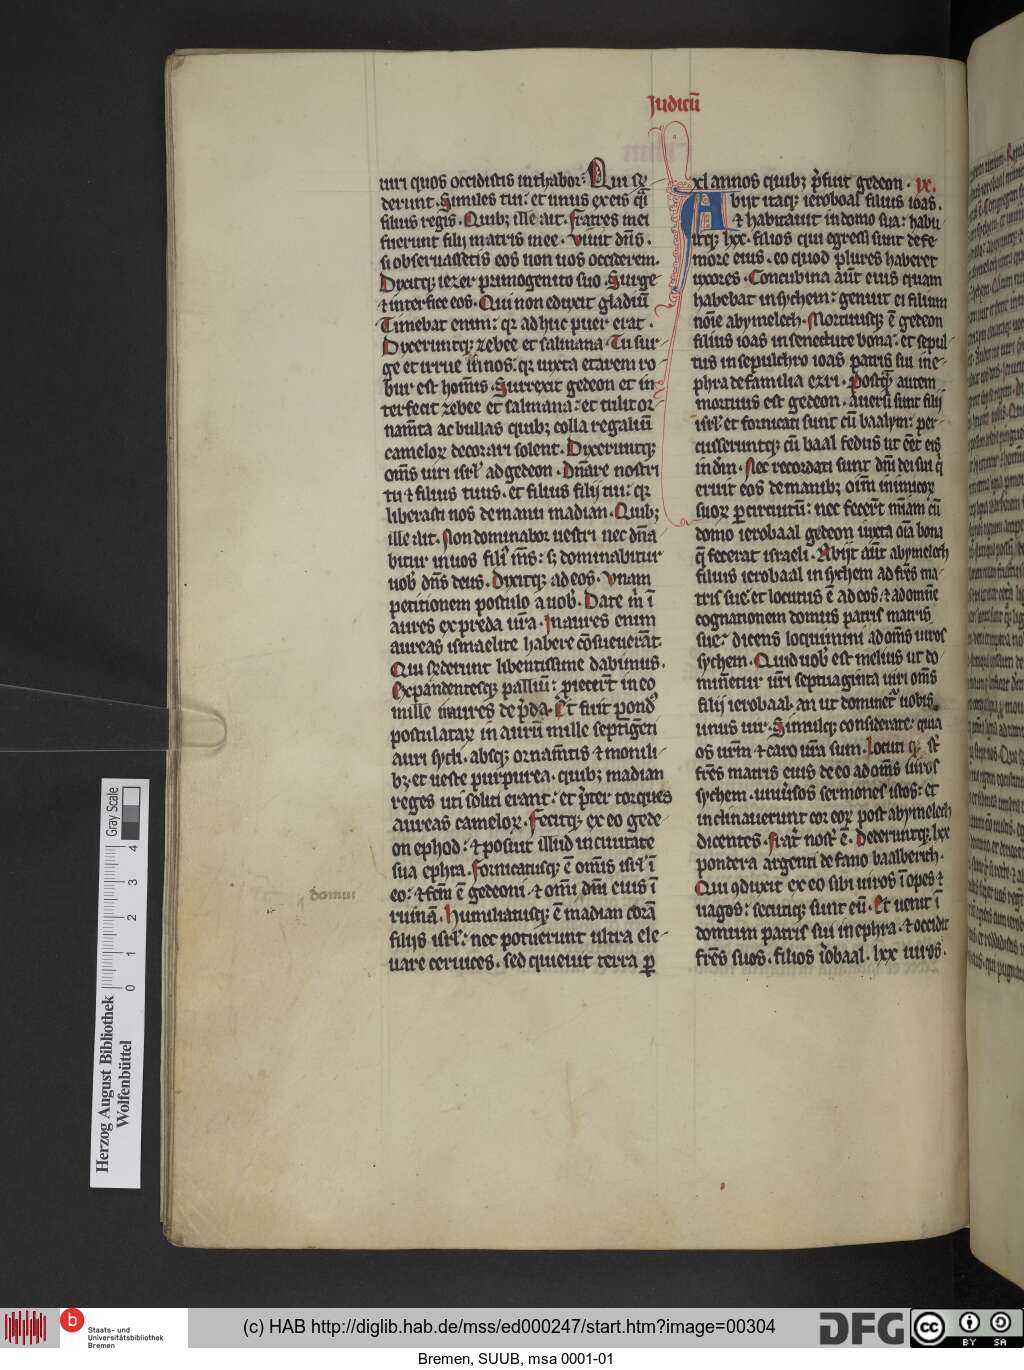 Judicū
uiri quos occidistis in thabor? Qui rn̄
derunt. Similes tui: et unus ex eis q̄i
filius regis. Quibꝫ ille ait. Fratres mei
fuerunt filij matris mee. Viuit dn̄s.
si obseruassetis eos non uos occiderem.
Dixitqꝫ iezer primogenito suo. Surge
⁊ interfice eos. Qui non eduxit gladiū
Timebat enim: qꝛ adhuc puer erat.
Dixeruntqꝫ zebee et salmana. Tu sur
ge et irrue ī nos: qꝛ iuxta etatem ro
bur est homīs. Surrexit gedeon et in
terfecit zebee et salmana: et tulit or
nam̄ta ac bullas quibꝫ colla regaliū
cameloꝝ decorari solent. Dixeruntqꝫ
om̄s uiri isrl̓ ad gedeon. Dn̄are nostri
tu ⁊ filius tuus. et filius filij tui: qꝛ
liberasti nos de manu madian. Quibꝫ
ille ait. Non dominabor uestri nec dn̄a
bitur in uos fili᷒ m̄s: sꝫ dominabitur
uob̓ dn̄s deus. Dixitqꝫ ad eos. Vnam
petitionem postulo a uob̓. Date m̄ ī
aures ex preda ur̄a. Inaures enim
aureas ismaelite habere cōsueuerāt.
Qui rn̄derunt libentissime dabimus.
Expandentesqꝫ palliū: proiecer̄t in eo
mille inaures de p̄da. Et fuit pond᷒
postulataꝝ in aurū mille septīgēti
auri sycli. absqꝫ ornam̄tis ⁊ monili
bꝫ et ueste purpurea. quibꝫ madian
reges uti soliti erant: et p̄ter torques
aureas cameloꝝ. Fecitqꝫ ex eo gede
on ephod: ⁊ posuit illud in ciuitate
sua ephra. Fornicatusqꝫ ē om̄is isrl̓ ī
eo: ⁊ fcm̄ ē gedeoni ⁊ om̄i dm̄ eius ī
ruinā. Humiliatusqꝫ ē madian corā
filijs isrl̓: nec potuerunt ultra ele
uare ceruices. sed quieuit terra ꝑ
domui
xl annos quibꝫ p̄fuit gedeon. ix.
Abijt itaqꝫ ieroboal filius ioas.
⁊ habitauit in domo sua: habu
itqꝫ lxx. filios qui egressi sunt de fe
more eius. eo quod plures haberet
uxores. Concubina aūt eius quam
habebat in sychem: genuit ei filium
nōie abymelech. Mortuusqꝫ ē gedeon
filius ioas in senectute bona. et sepul
tus in sepulchro ioas patris sui in e
phra de familia ezri. Postqꝫ̄ autem
mortuus est gedeon. auersi sunt filij
isrl̓ et fornicati sunt cū baalym: per
cusseruntqꝫ cū baal fedus ut eēt eis
in dm̄. Nec recordati sunt dn̄i dei sui q̓
eruit eos de manibꝫ oīm inimicoꝝ
suoꝝ ꝑ circuitū: nec fecer̄t mīam cū
domo ierobaal gedeon iuxta oīa bona
q̄ fecerat israeli. Abijt aūt abymelech
filius ierobaal in sychem ad frēs ma
tris sue: et locutus ē ad eos ⁊ ad omnē
cognationem domus patris matris
sue: dicens loquimini ad om̄s uiros
sychem. Quid uob̓ est melius ut do
minētur ur̄i septuaginta uiri om̄s
filij ierobaal. an ut dominet᷑ uobis
unus uir. Simulqꝫ considerate: quia
os ur̄m ⁊ caro ur̄a sum. Locuti qꝫ st̄
frēs matris eius de eo ad om̄s uiros
sychem. uniūsos sermones istos: et
inclinauerunt cor eoꝝ post abymelech
dicentes. Frat̄ nost̄ ē. Dederuntqꝫ lxx
pondera argenti de fano baalberith.
Qui ꝯduxit ex eo sibi uiros īopes ⁊
uagos: secutiqꝫ sunt eū. Et uenit ī
domum patris sui in ephra. ⁊ occidit
frēs suos. filios iobaal. lxx uiros.
Gray Scale
4
3
2
1
0
Herzog August Bibliothek
Wolfenbüttel
b
Staats- und
Universitätsbibliothek
Bremen
(c) HAB http://diglib.hab.de/mss/ed000247/start.htm?image=00304
DFG
cc
BY SA
Bremen, SUUB, msa 0001-01